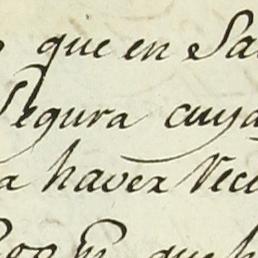 que en Sa
Segura cuya
a haver Veci
que h